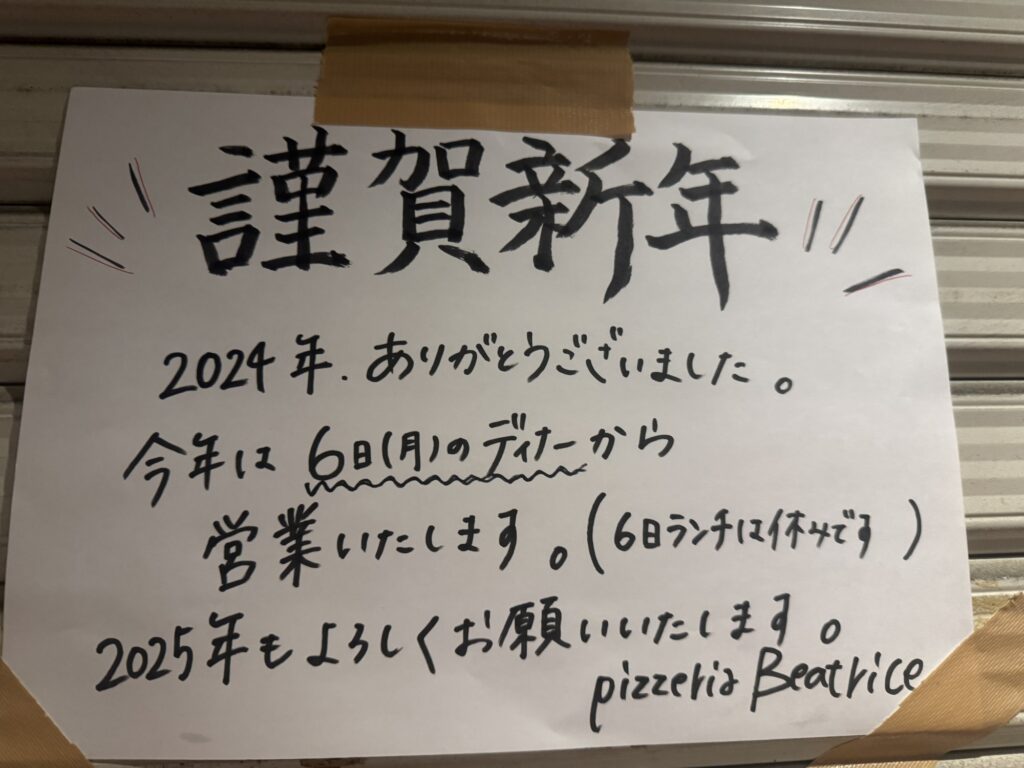 謹賀新年
2024年.ありがとうございました。
今年は 6日(月)のディナーから
営業いたします。(6日ランチは休みです)
2025年もよろしくお願いいたします。
pizzeria Beatrice